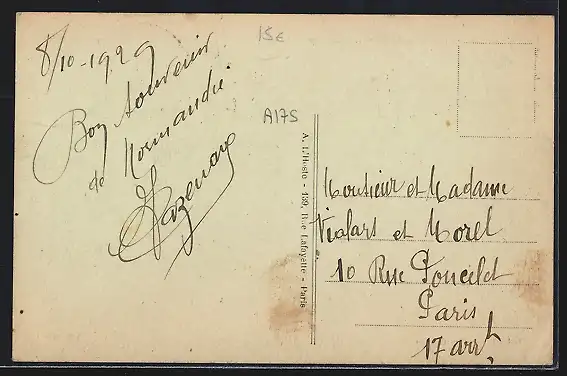 8/10-1929
Bon souvenir
de Normandie
15€
A175
A. L'Hoste - 139, Rue Lafayette - Paris
Monsieur et Madame
Vialart et Morel
10 Rue Poncelet
Paris
17 arrt